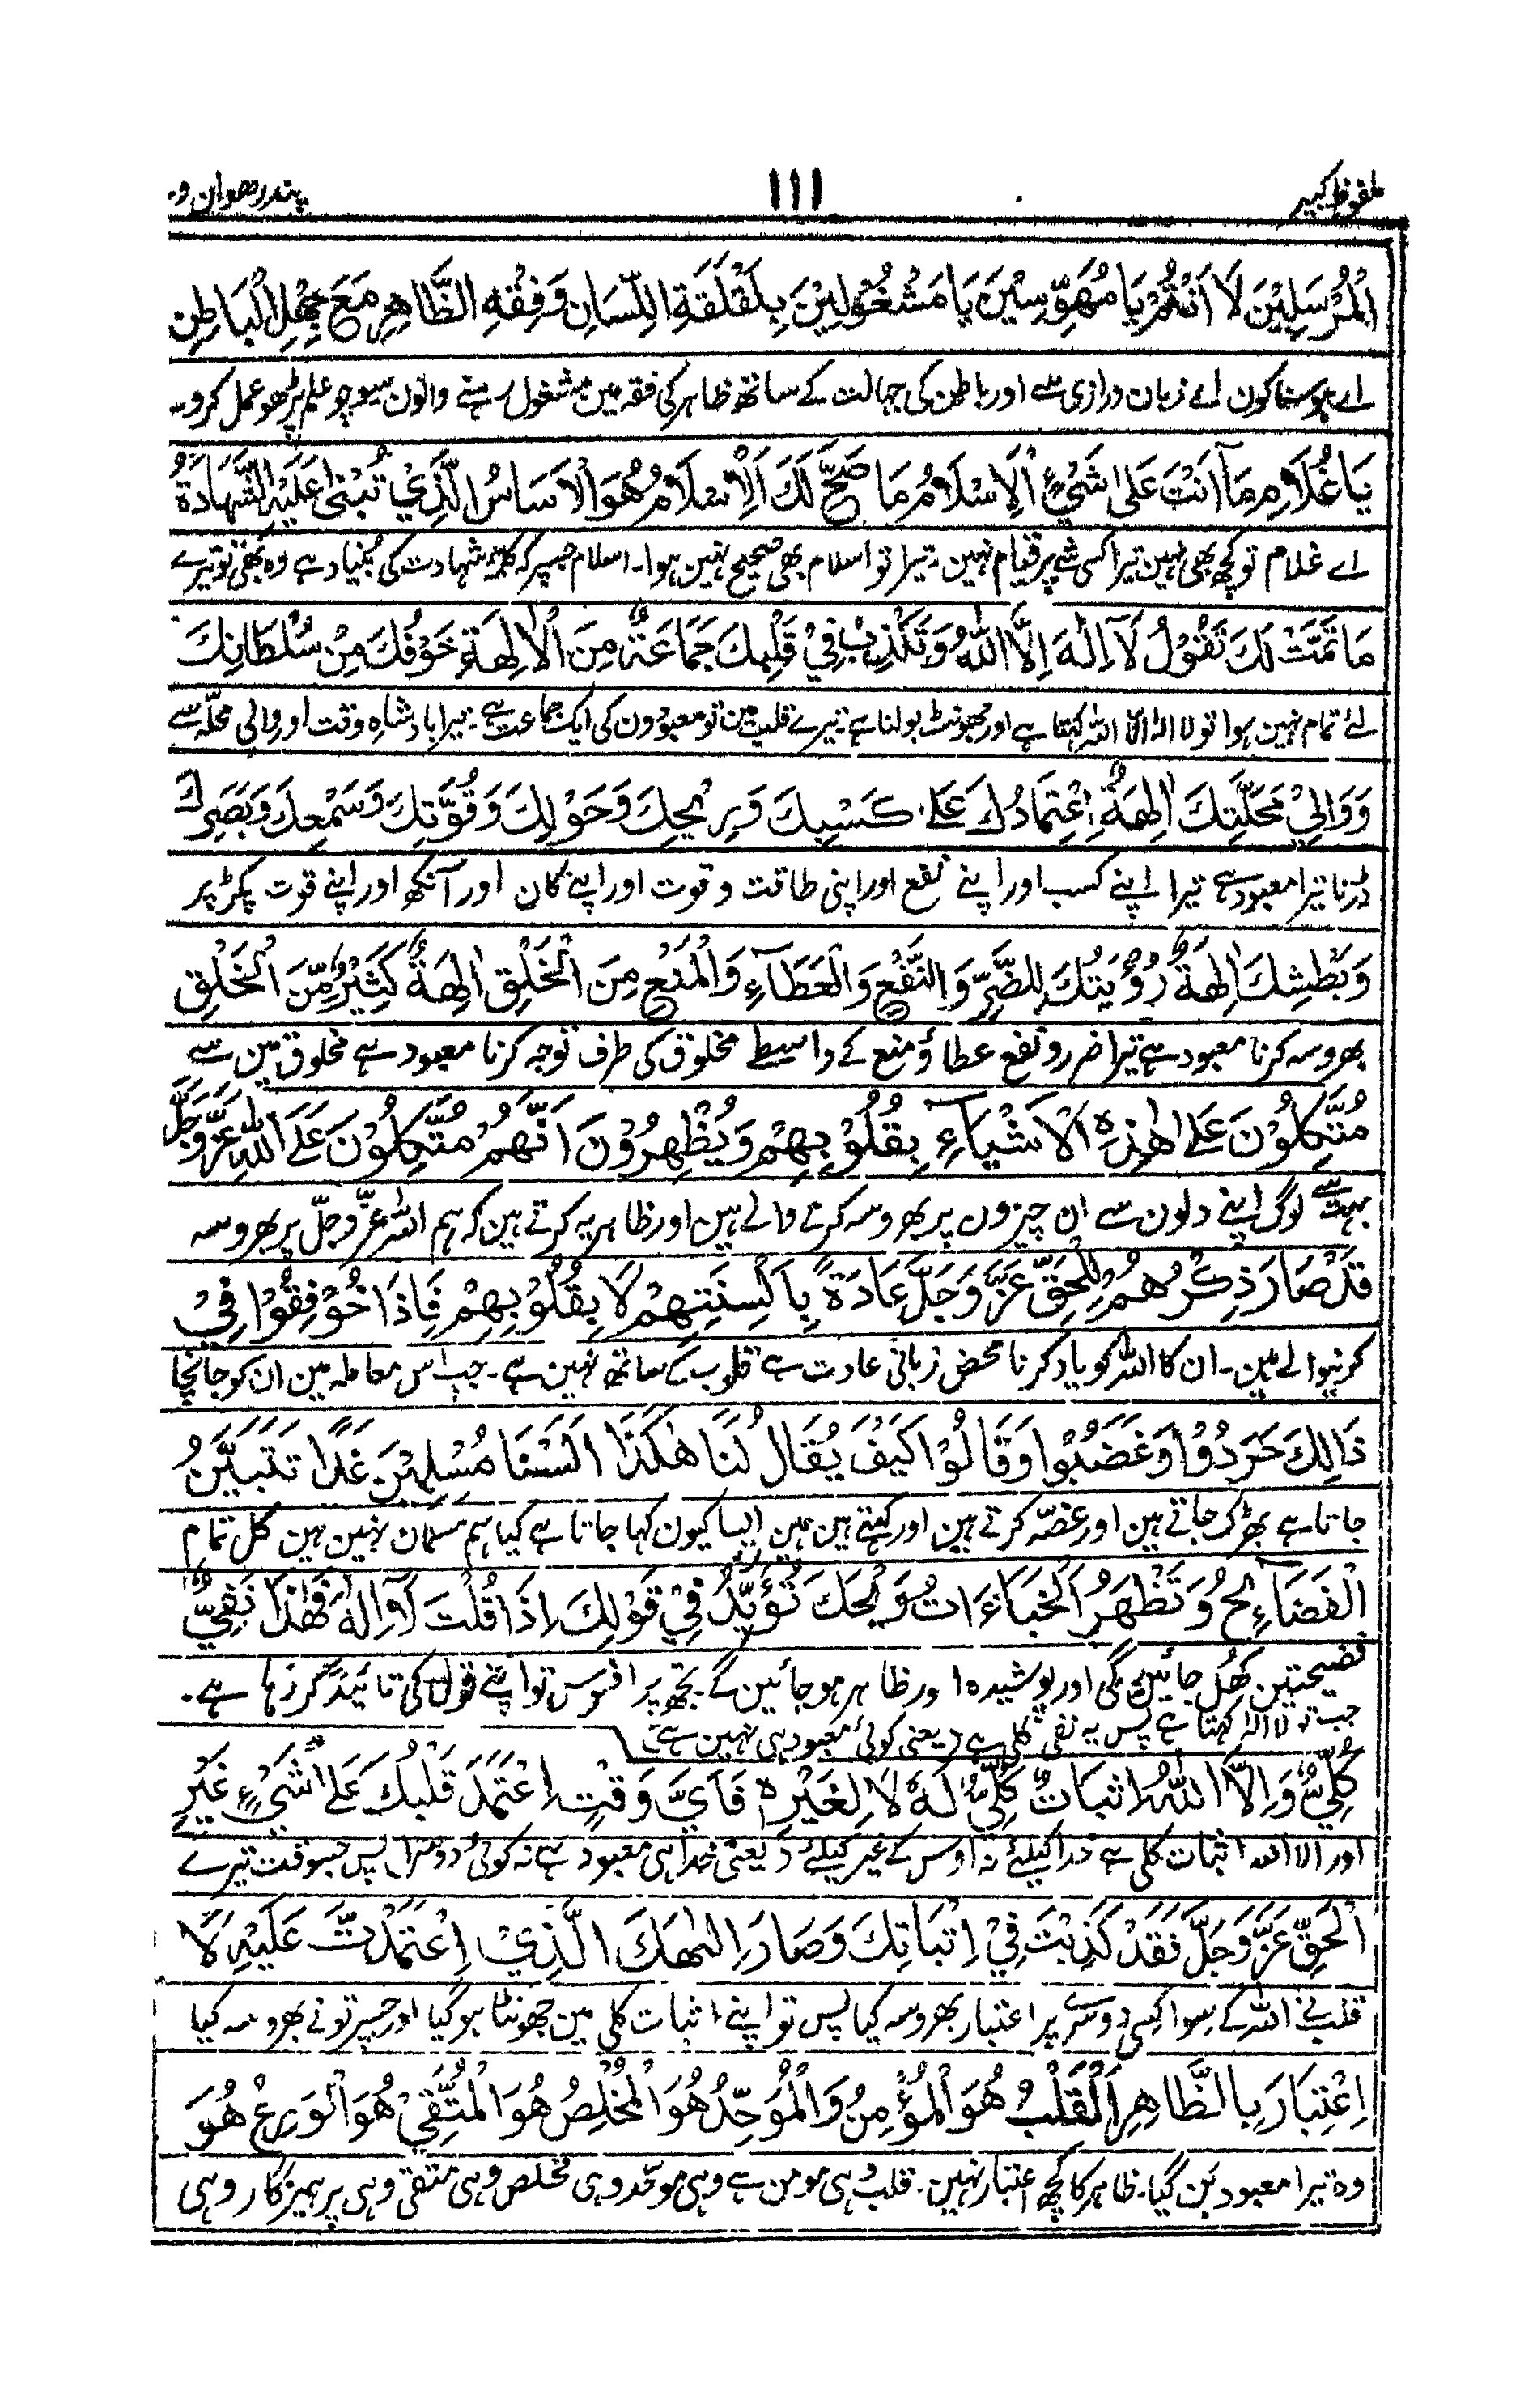 ملفوظ کبیر
۱۱۱
پندرھوان و-
الْمُرْسَلِيْنَ لَا اَنْتُمْ يَا مُهَوِّسِيْنَ يَا مَشْغُوْلِيْنَ بِلَقْلَقَةِ اللِّسَانِ وَفِقْهِ الظَّاهِرِ مَعَ جَهْلِ الْبَاطِنِ
اے ہوسناکون اے زبان درازی سے اور باطن کی جہالت کے ساتھ ظاہر کی فقہ مین مشغول رہنے والون سیوچو علم پڑھو عمل کرو۔
يَا غُلَامُ مَا اَنْتَ عَلٰى شَيْءٍ اَلْاِسْلَامُ مَا صَحَّ لَكَ اَلْاِسْلَامُ هُوَ الْاَسَاسُ الَّذِيْ تُبْنٰى عَلَيْهِ الشَّهَادَةُ
اے غلام تو کچھ بھی نہین تیرا کسی شے پر قیام نہین۔ تیرا تو اسلام بھی صحیح نہین ہوا۔ اسلام جسپر کہ کلمۂ شہادت کی بنیاد ہے وہ بھی تو تیرے
مَا تَمَّتْ لَكَ تَقُوْلُ لَآ اِلٰهَ اِلَّا اللّٰهُ وَتَكْذِبُ فِيْ قَلْبِكَ جَمَاعَةٌ مِنَ الْاٰلِهَةِ خَوْفُكَ مِنْ سُلْطَانِكَ
لئے تمام نہین ہوا تو لا الہ الا اللہ کہتا ہے اور جھونٹ بولتا ہے۔ تیرے قلب مین تو معبودون کی ایک جماعت ہے۔ تیرا بادشاہ وقت اور والی محلہ سے
وَوَالِيْ مَحَلَّتِكَ اٰلِهَةٌ اِعْتِمَادُكَ عَلٰى كَسْبِكَ وَرِبْحِكَ وَحَوْلِكَ وَقُوَّتِكَ وَسَمْعِكَ وَبَصَرِكَ
ڈرنا تیرا معبود ہے تیرا اپنے کسب اور اپنے نفع اور اپنی طاقت و قوت اور اپنے کان اور آنکھ اور اپنے قوت پکڑ پر
وَبَطْشِكَ اٰلِهَةٌ رُؤْيَتُكَ لِلضَّرِّ وَالنَّفْعِ وَالْعَطَآءِ وَالْمَنْعِ مِنَ الْخَلْقِ اٰلِهَةٌ كَثِيْرٌ مِّنَ الْخَلْقِ
بھروسہ کرنا معبود ہے تیرا ضرر و نفع عطا و منع کے واسطے مخلوق کی طرف توجہ کرنا معبود ہے مخلوق مین سے
مُتَّكِلُوْنَ عَلٰى هٰذِهِ الْاَشْيَآءِ بِقُلُوْبِهِمْ وَيُظْهِرُوْنَ اَنَّهُمْ مُتَّكِلُوْنَ عَلَى اللّٰهِ عَزَّ وَجَلَّ
بہت سے لوگ اپنے دلون سے ان چیزون پر بھروسہ کرنے والے ہین اور ظاہر یہ کرتے ہین کہ ہم اللہ عزّ وجلّ پر بھروسہ
قَدْ صَارَ ذِكْرُهُمْ لِلْحَقِّ عَزَّ وَجَلَّ عَادَةً بِاَلْسِنَتِهِمْ لَا بِقُلُوْبِهِمْ فَاِذَا حُوْقِقُوْا فِيْ
کرنیوالے ہین۔ ان کا اللہ کو یاد کرنا محض زبانی عادت ہے قلوب کے ساتھ نہین ہے۔ جب اس معاملہ مین ان کو جانچا
ذَالِكَ حَرَدُوْا وَغَضَبُوْا وَقَالُوْا كَيْفَ يُقَالُ لَنَا هٰكَذَا اَلَسْنَا مُسْلِمِيْنَ غَدًا تَتَبَيَّنُ
جاتا ہے بھڑک جاتے ہین اور غصّہ کرتے ہین اور کہتے ہین ہمین ایسا کیون کہا جاتا ہے کیا ہم مسلمان نہین ہین کل تمام
الْفَضَآئِحُ وَتَظْهَرُ الْخَبَاءَاتُ وَيْحَكَ تُؤَيِّدُ فِيْ قَوْلِكَ اِذَا قُلْتَ لَآ اِلٰهَ فَهٰذَا نَفِيٌّ
فضیحتین کھل جائین گی اور پوشیدہ اور ظاہر ہو جائین گے۔ تجھ پر افسوس تو اپنے قول کی تائید کر رہا ہے۔
جب تو لا الہ کہتا ہے پس یہ نفی کلی ہے (یعنی کوئی معبود ہی نہین ہے)
كُلِّيٌّ وَاِلَّا اللّٰهُ اِثْبَاتٌ كُلِّيٌّ لَهٗ لَا لِغَيْرِهٖ فَاَيَّ وَقْتٍ اِعْتَمَدَ قَلْبُكَ عَلٰى شَيْءٍ غَيْرِ
اور الا اللہ اثبات کلی ہے خدا کیلئے نہ اوس کے غیر کیلئے (یعنی خدا ہی معبود ہے نہ کوئی دوسرا) پس جسوقت تیرے
الْحَقِّ عَزَّ وَجَلَّ فَقَدْ كَذَبْتَ فِيْ اِثْبَاتِكَ وَصَارَ اِلٰهَكَ الَّذِيْ اِعْتَمَدْتَّ عَلَيْهِ لَا
قلب نے اللہ کے سوا کسی دوسرے پر اعتبار بھروسہ کیا پس تو اپنے اثبات کلی مین جھونٹا ہو گیا اور جسپر تو نے بھروسہ کیا
اِعْتِبَارَ بِالظَّاهِرِ اَلْقَلْبُ هُوَ الْمُؤْمِنُ وَالْمُوَحِّدُ هُوَ الْمُخْلِصُ هُوَ الْمُتَّقِيْ هُوَ الْوَرِعُ هُوَ
وہ تیرا معبود بن گیا۔ ظاہر کا کچھ اعتبار نہین۔ قلب ہی مومن ہے وہی موحّد وہی مخلص وہی متقی وہی پرہیزگار وہی